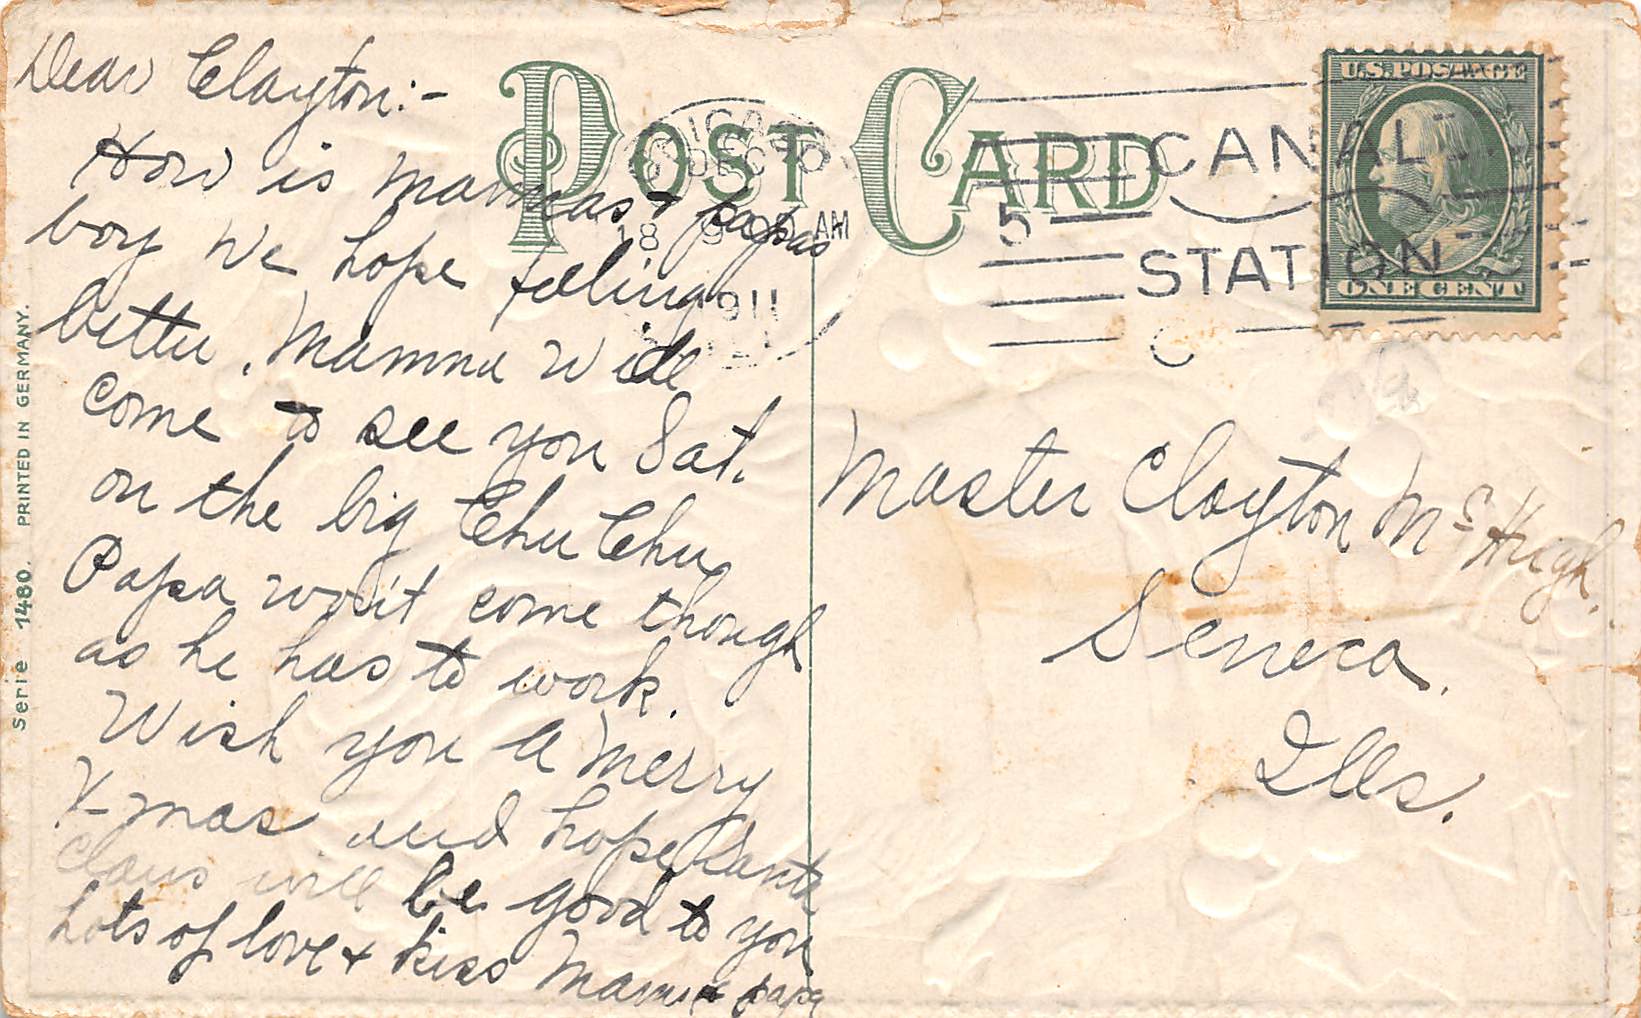 Dear Clayton:-
How is mamas + papas
boy We hope feeling
better. Mamma will
come to see you Sat.
on the big Chu Chu
Papa won't come though
as he has to work.
Wish you a Merry
X-mas and hope Santa
Claus will be good to you
Lots of love + kiss Mama + papa
POST CARD
CHICAGO
DEC
18 9 AM
1911
ILL.
5
CANAL
STATION
U.S. POSTAGE
ONE CENT
Master Clayton McHugh.
Seneca.
Ills.
Serie 1480. PRINTED IN GERMANY.